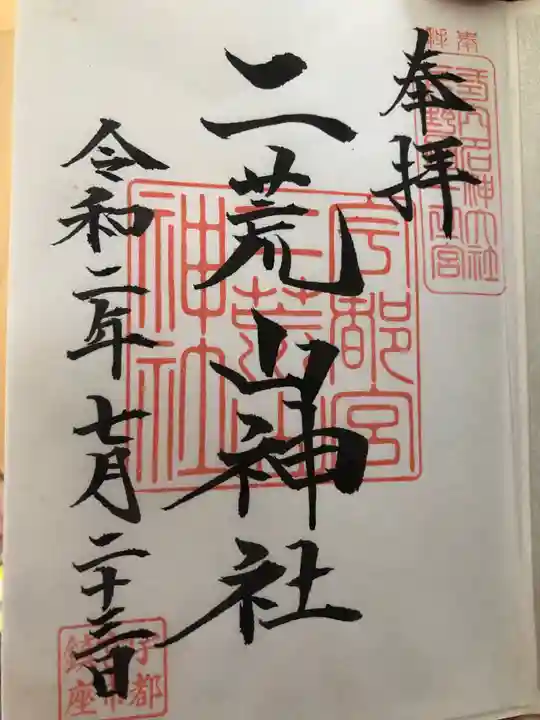 奉拝
二荒山神社
令和二年七月二十三日
奉拝
名神大社
宇都宮
二荒山
神社
宇都
鎮座